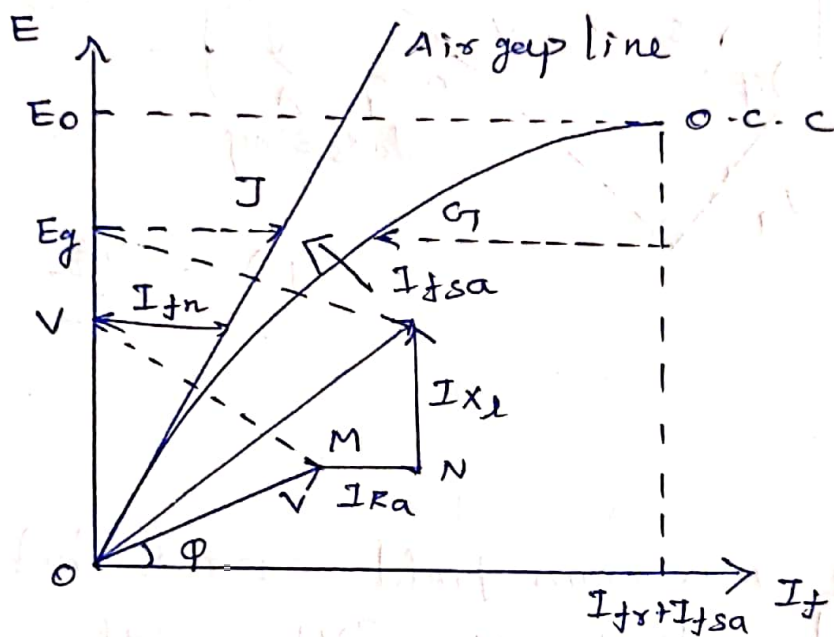 E
Air gap line
Eo
O.C.C
J
G
Eg
Ifsa
Ifn
V
IXl
M
N
V
IRa
φ
O
Ifr+Ifsa
If